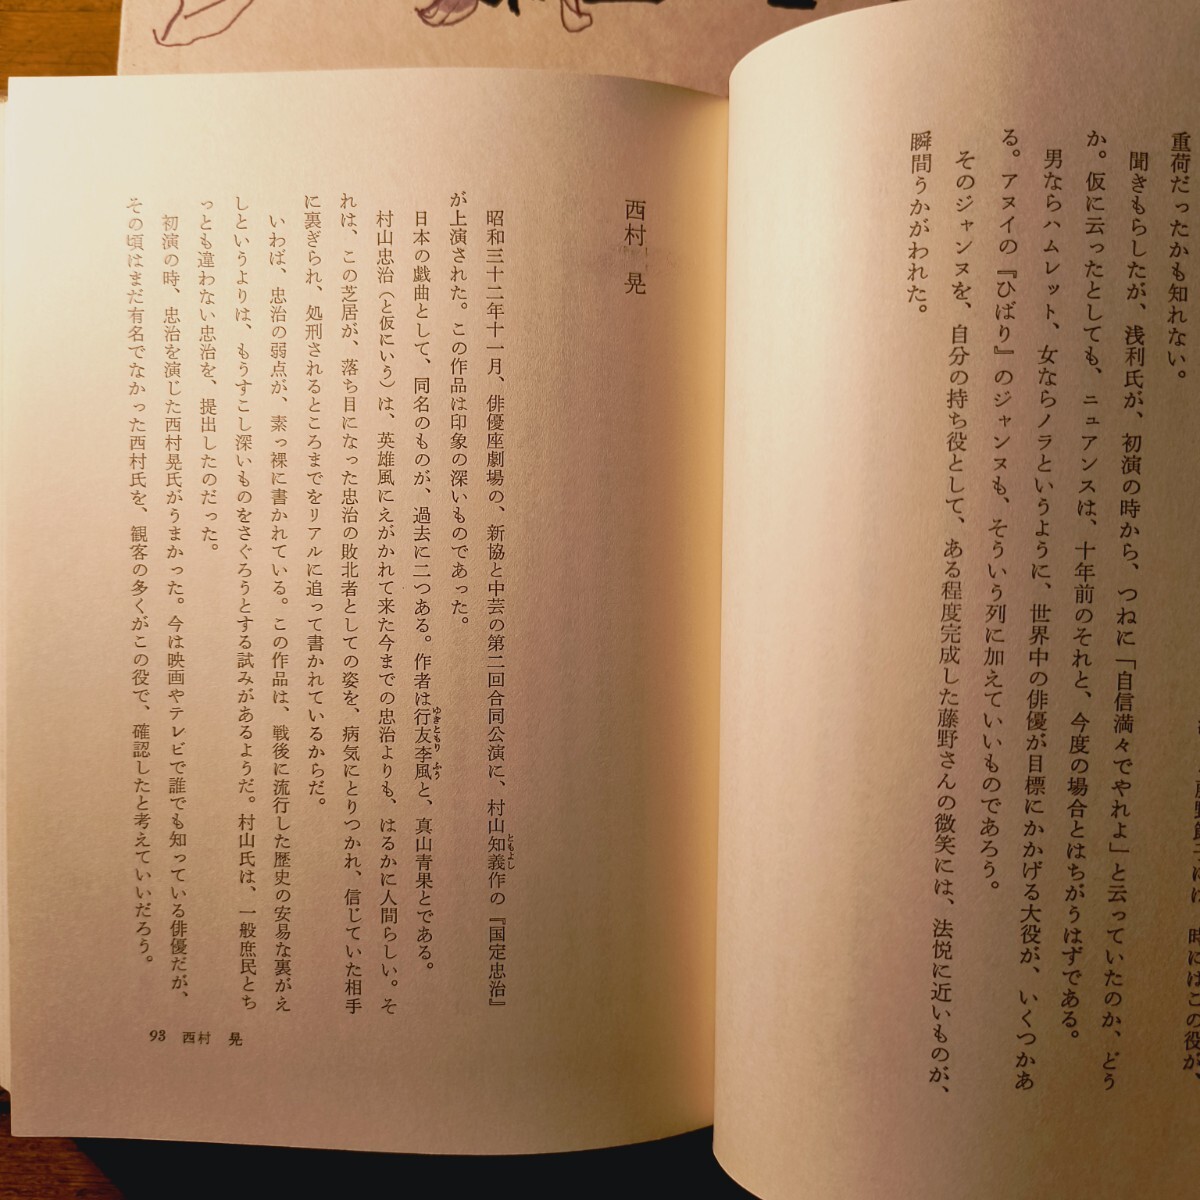 時にはこの役が、
重荷だったかも知れない。
聞きもらしたが、浅利氏が、初演の時から、つねに「自信満々でやれよ」と云っていたのか、どう
か。仮に云ったとしても、ニュアンスは、十年前のそれと、今度の場合とはちがうはずである。
男ならハムレット、女ならノラというように、世界中の俳優が目標にかかげる大役が、いくつかあ
る。アヌイの『ひばり』のジャンヌも、そういう列に加えていいものであろう。
そのジャンヌを、自分の持ち役として、ある程度完成した藤野さんの微笑には、法悦に近いものが、
瞬間うかがわれた。
西村 晃
昭和三十二年十一月、俳優座劇場の、新協と中芸の第二回合同公演に、村山知義作の『国定忠治』
ともよし
が上演された。この作品は印象の深いものであった。
日本の戯曲として、同名のものが、過去に二つある。作者は行友李風と、真山青果とである。
ゆきともり ふう
村山忠治(と仮にいう)は、英雄風にえがかれて来た今までの忠治よりも、はるかに人間らしい。そ
れは、この芝居が、落ち目になった忠治の敗北者としての姿を、病気にとりつかれ、信じていた相手
に裏ぎられ、処刑されるところまでをリアルに追って書かれているからだ。
いわば、忠治の弱点が、素っ裸に書かれている。この作品は、戦後に流行した歴史の安易な裏がえ
しというよりは、もうすこし深いものをさぐろうとする試みがあるようだ。村山氏は、一般庶民とち
っとも違わない忠治を、提出したのだった。
初演の時、忠治を演じた西村晃氏がうまかった。今は映画やテレビで誰でも知っている俳優だが、
その頃はまだ有名でなかった西村氏を、観客の多くがこの役で、確認したと考えていいだろう。
93 西村 晃